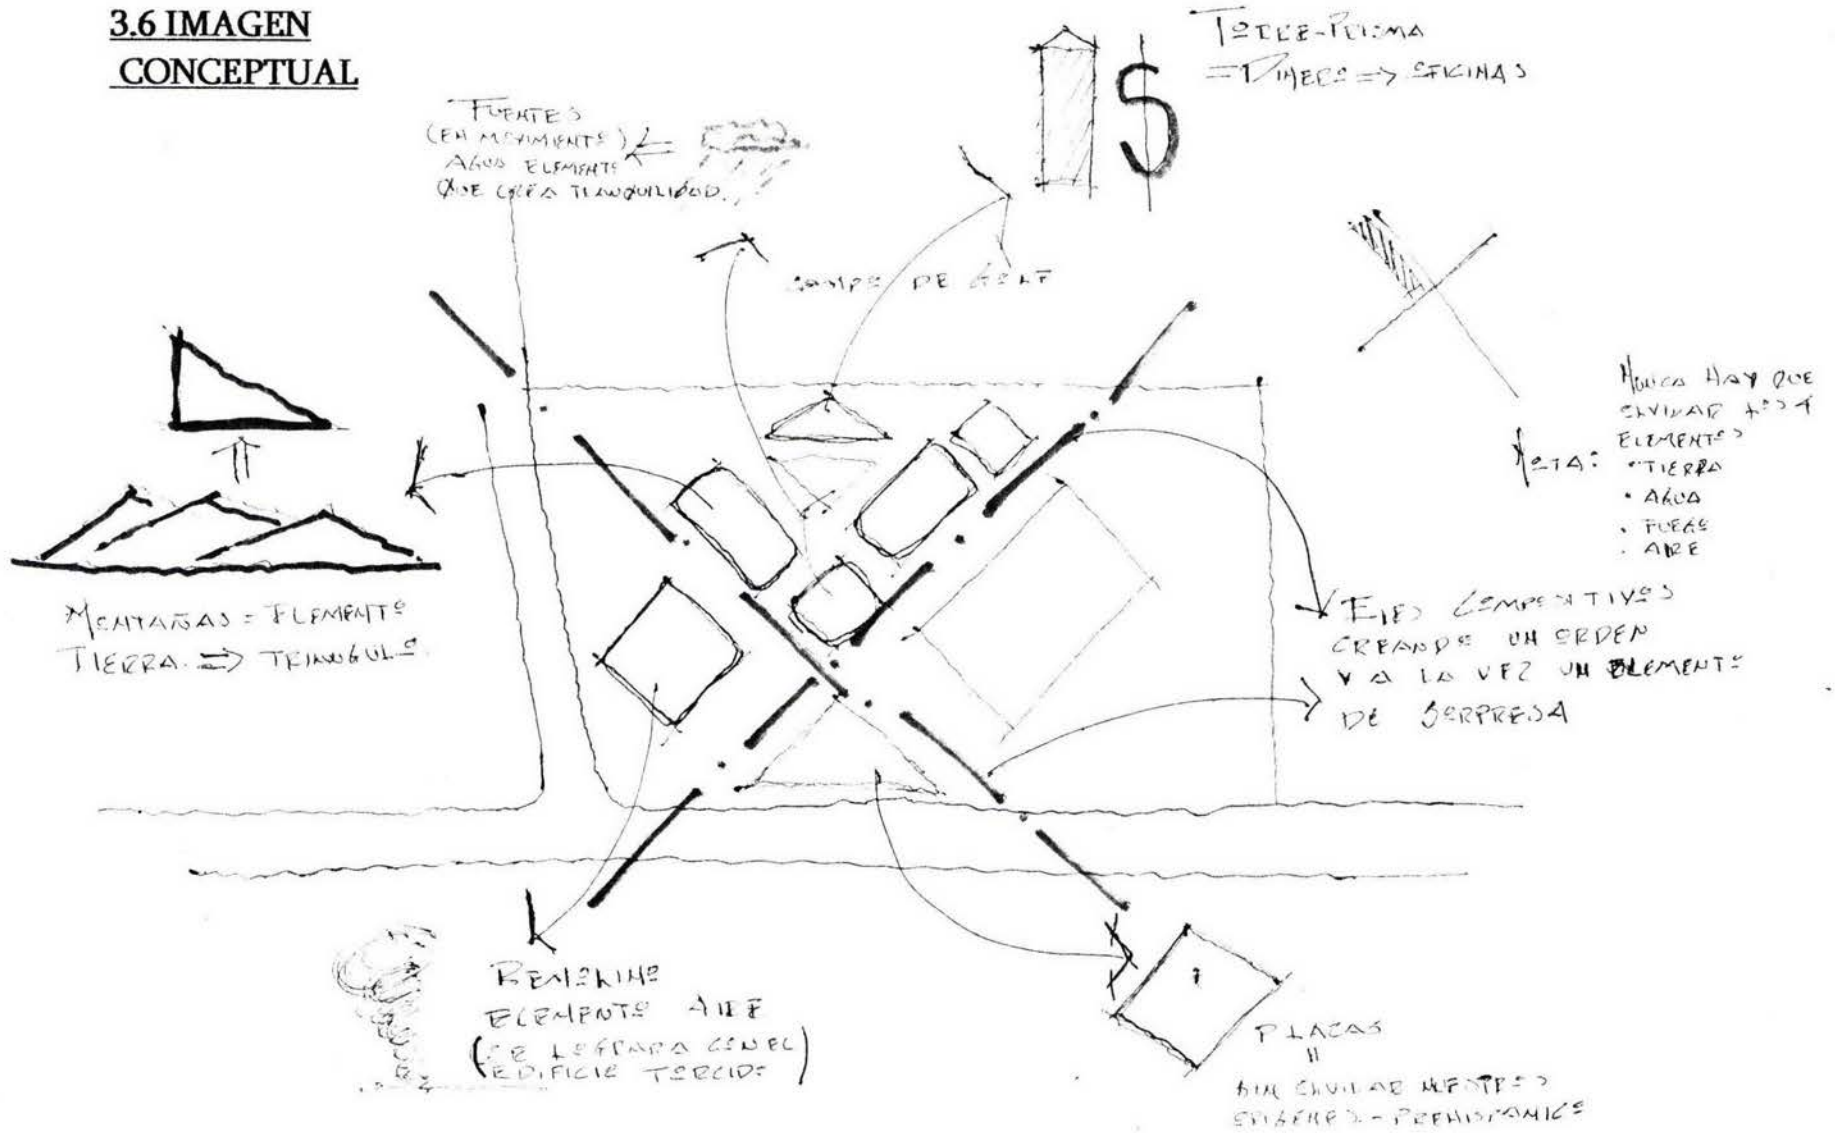 3.6 IMAGEN
CONCEPTUAL
TORRE-PRISMA
=DINERO => OFICINAS
$
FUENTES
(EN MOVIMIENTO)
AGUA ELEMENTO
QUE CREA TRANQUILIDAD.
CAMPO DE GOLF
NUNCA HAY QUE
OLVIDAR LOS 4
ELEMENTOS
NOTA:
• TIERRA
• AGUA
• FUEGO
• AIRE
MONTAÑAS = ELEMENTO
TIERRA => TRIANGULO.
EJES COMPOSITIVOS
CREANDO UN ORDEN
Y A LA VEZ UN ELEMENTO
DE SORPRESA
REMOLINO
ELEMENTO AIRE
(SE LOGRARA CON EL
EDIFICIO TORCIDO)
PLAZAS
=
SIN OLVIDAR NUESTROS
ORIGENES - PREHISPANICO